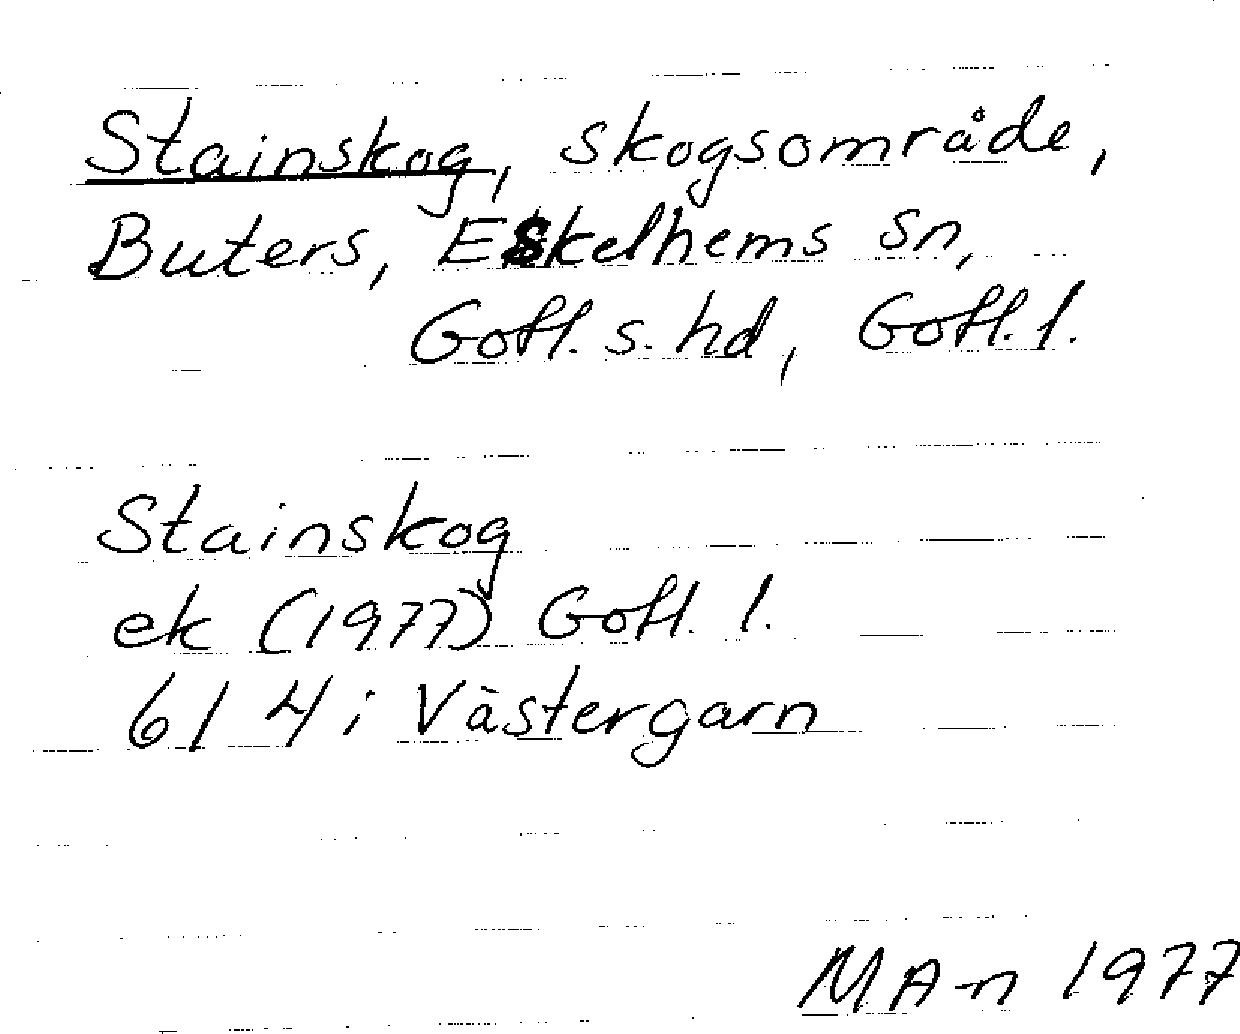 Stainskog, skogsområde,
Buters, Eskelhems sn,
Gotl. s. hd, Gotl. l.
Stainskog
ek (1977) Gotl. l.
6I 4i Västergarn
MA-n 1977